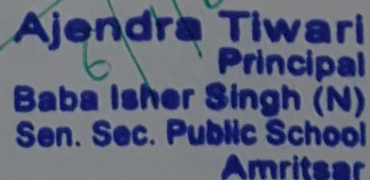 Ajendra Tiwari
Principal
Baba Isher Singh (N)
Sen. Sec. Public School
Amritsar